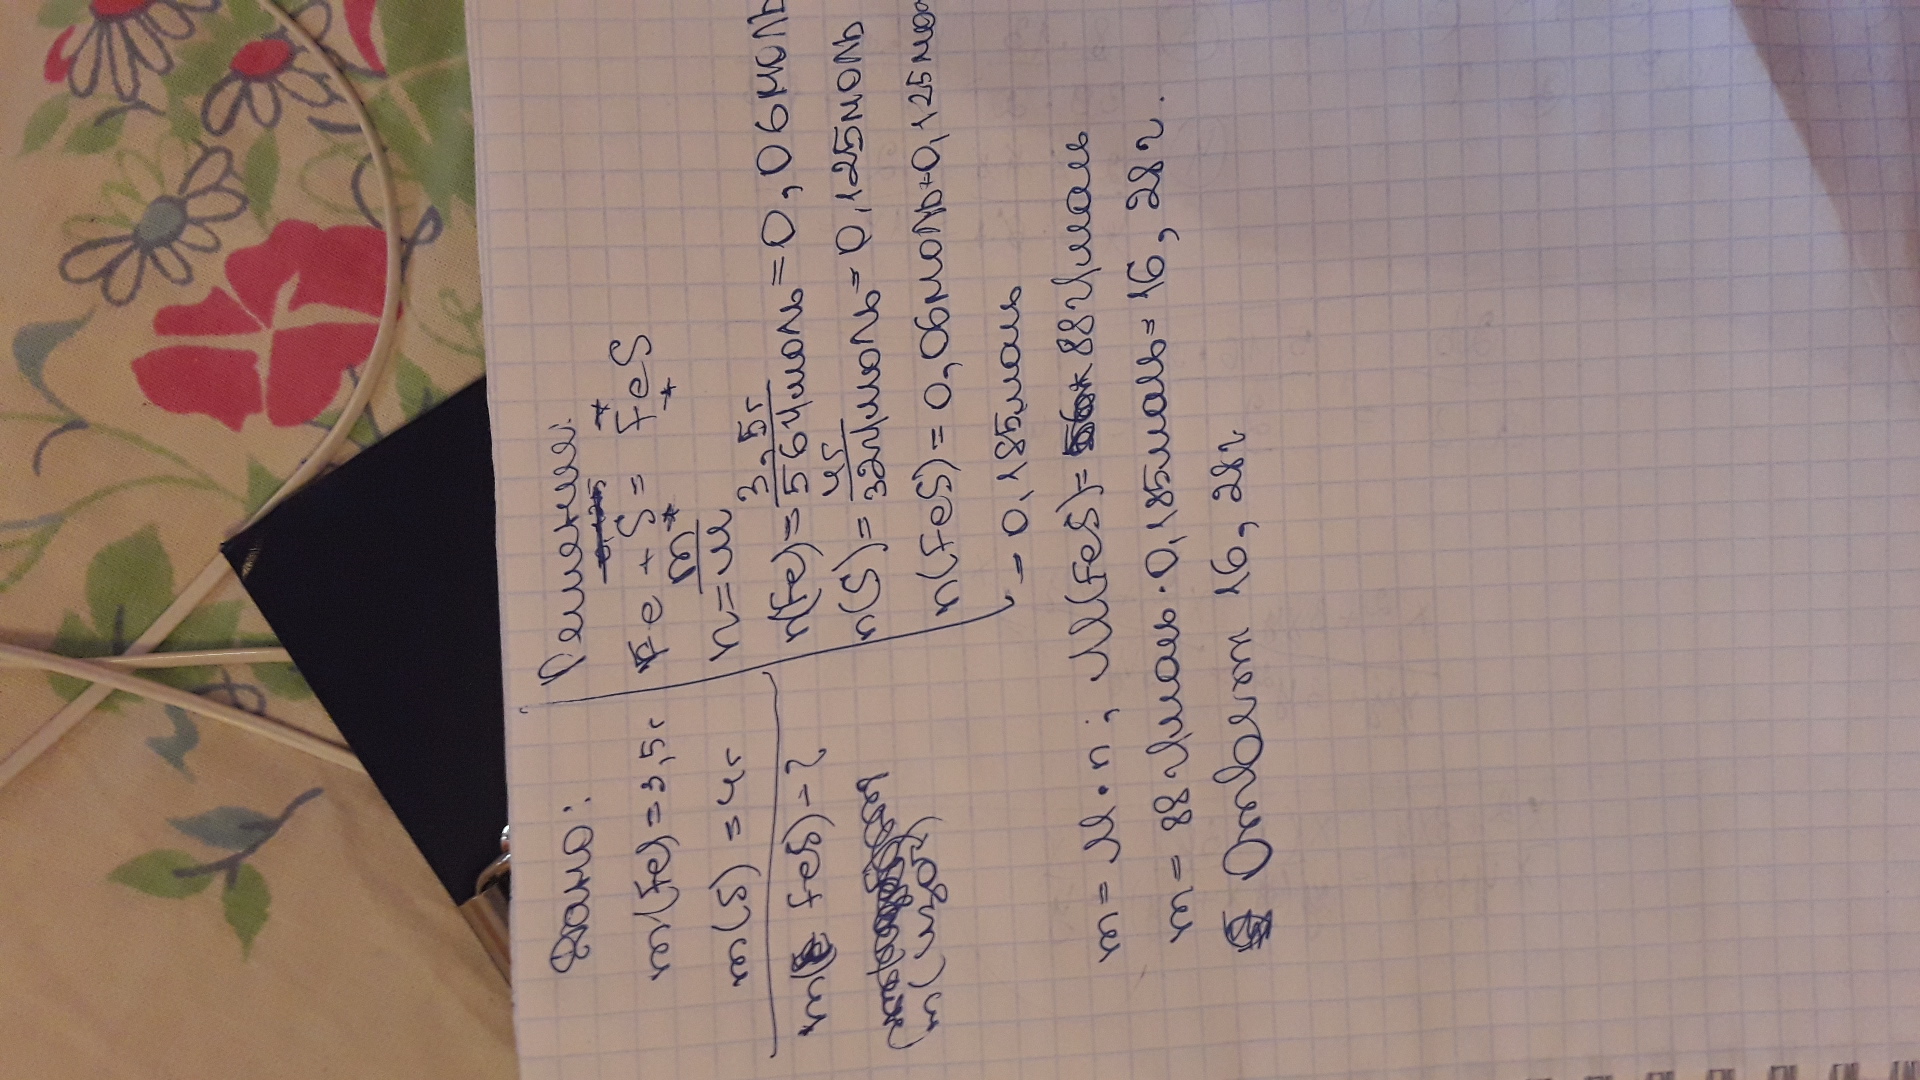 Дано:
m(Fe)=3,5г
m(S)=4г
m(FeS)-?
Решение:
Fe + S = FeS
n=m/M
n(Fe)=3,5г/56г/моль=0,06моль
n(S)=4г/32г/моль=0,125моль
n(FeS)=0,06моль+0,125мол
=0,185моль
m=M·n; M(FeS)=88г/моль
m=88г/моль·0,185моль=16,28г.
Ответ 16,28г